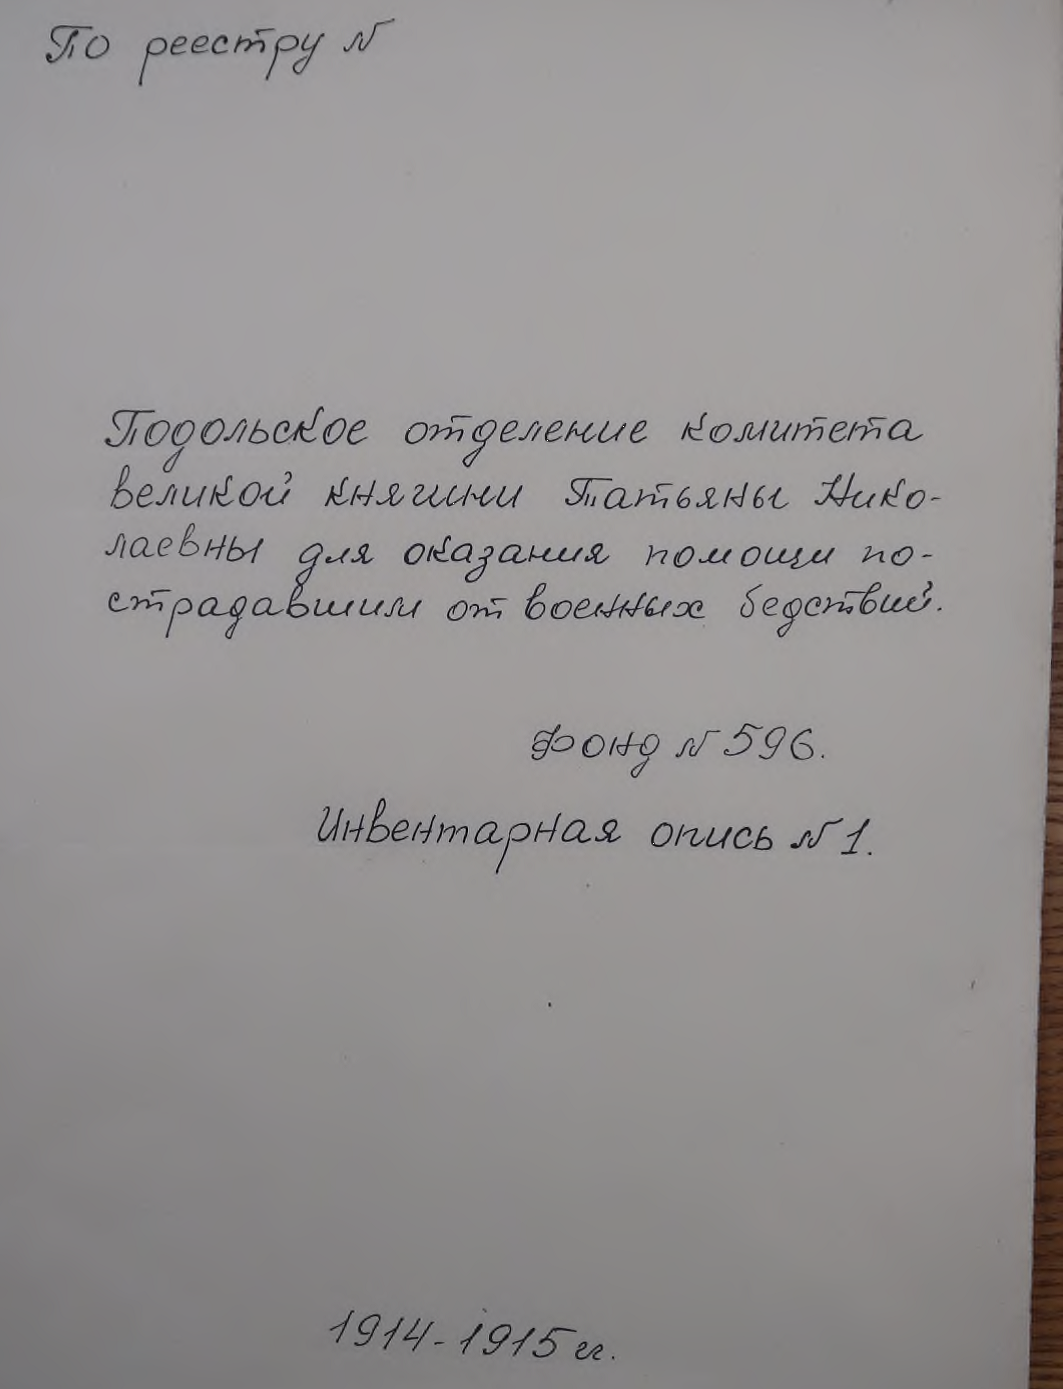 По реестру N
Подольское отделение комитета
великой княгини Татьяны Нико-
лаевны для оказания помощи по-
страдавшим от военных бедствий.
Фонд N 596.
Инвентарная опись N 1.
1914-1915 гг.